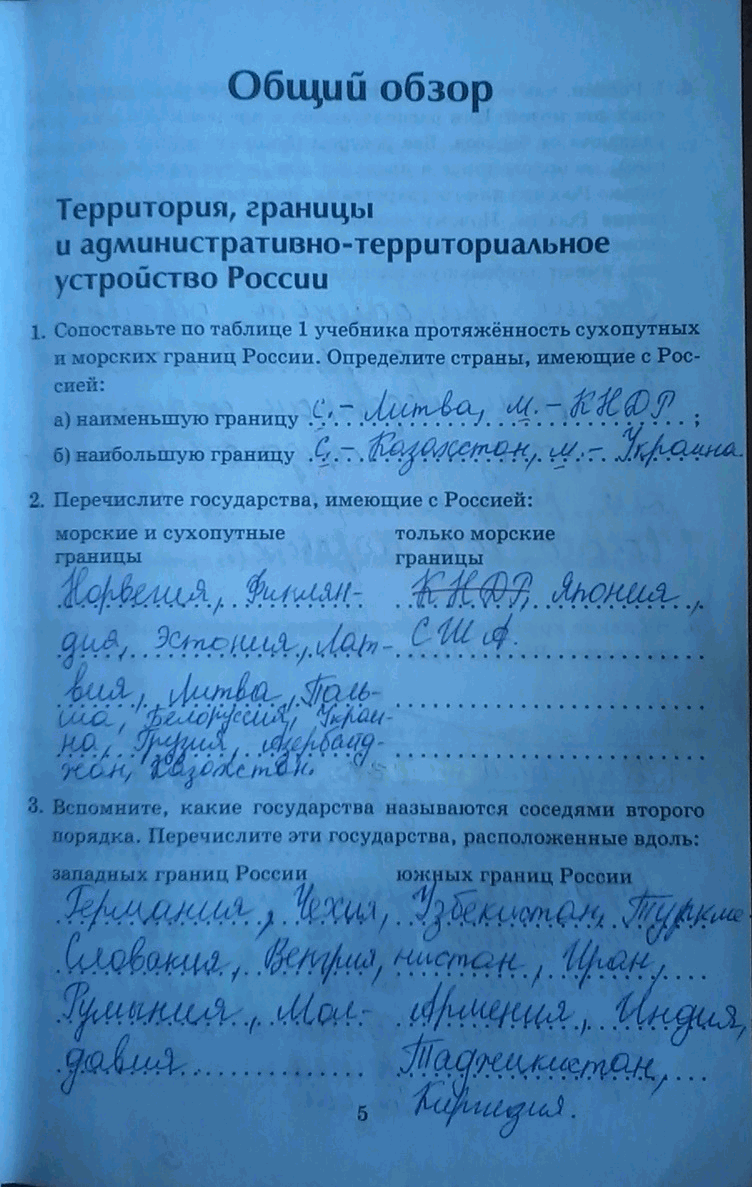 Общий обзор
Территория, границы
и административно-территориальное
устройство России
1. Сопоставьте по таблице 1 учебника протяжённость сухопутных
и морских границ России. Определите страны, имеющие с Рос-
сией:
а) наименьшую границу с. – Литва, м. – КНДР ;
б) наибольшую границу с. – Казахстан, м. – Украина.
2. Перечислите государства, имеющие с Россией:
морские и сухопутные
границы
Норвегия, Финлян-
дия, Эстония, Лат-
вия, Литва, Поль-
ша, Белоруссия, Украи-
на, Грузия, Азербайд-
жан, Казахстан.
только морские
границы
КНДР, Япония,
США.
3. Вспомните, какие государства называются соседями второго
порядка. Перечислите эти государства, расположенные вдоль:
западных границ России
Германия, Чехия,
Словакия, Венгрия,
Румыния, Мол-
давия
южных границ России
Узбекистан, Туркме-
нистан, Иран,
Армения, Индия,
Таджикистан,
Киргизия.
5